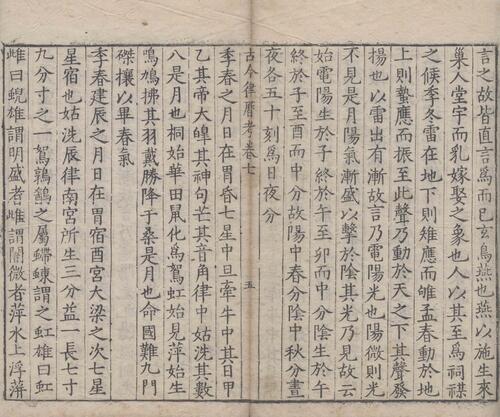 言之故皆直言爲而已玄鳥燕也燕以施生來
巢人堂宇而乳嫁娶之象也人以其至爲祠禖
之候季冬雷在地下則雉應而雊孟春動於地
上則蟄應而振至此聲乃動於天之下其聲發
揚也以雷出有漸故言乃電陽光也陽微則光
不見是月陽氣漸盛以擊於陰其光乃見故云
始電陽生於子終於午至卯而中分陰生於午
終於子至酉而中分故陽中春分陰中秋分晝
夜各五十刻爲日夜分
古今律曆考卷七
五
季春之月日在胃昏七星中旦牽牛中其日甲
乙其帝大皥其神句芒其音角律中姑洗其數
八是月也桐始華田鼠化爲鴽虹始見萍始生
鳴鳩拂其羽戴勝降于桑是月也命國難九門
磔攘以畢春氣
季春建辰之月日在胃宿酉宮大梁之次七星
星宿也姑洗辰律南宮所生三分益一長七寸
九分寸之一鴽鶉鷃之屬螮蝀謂之虹雄曰虹
雌曰蜺雄謂明盛者雌謂闇微者萍水上浮蓱